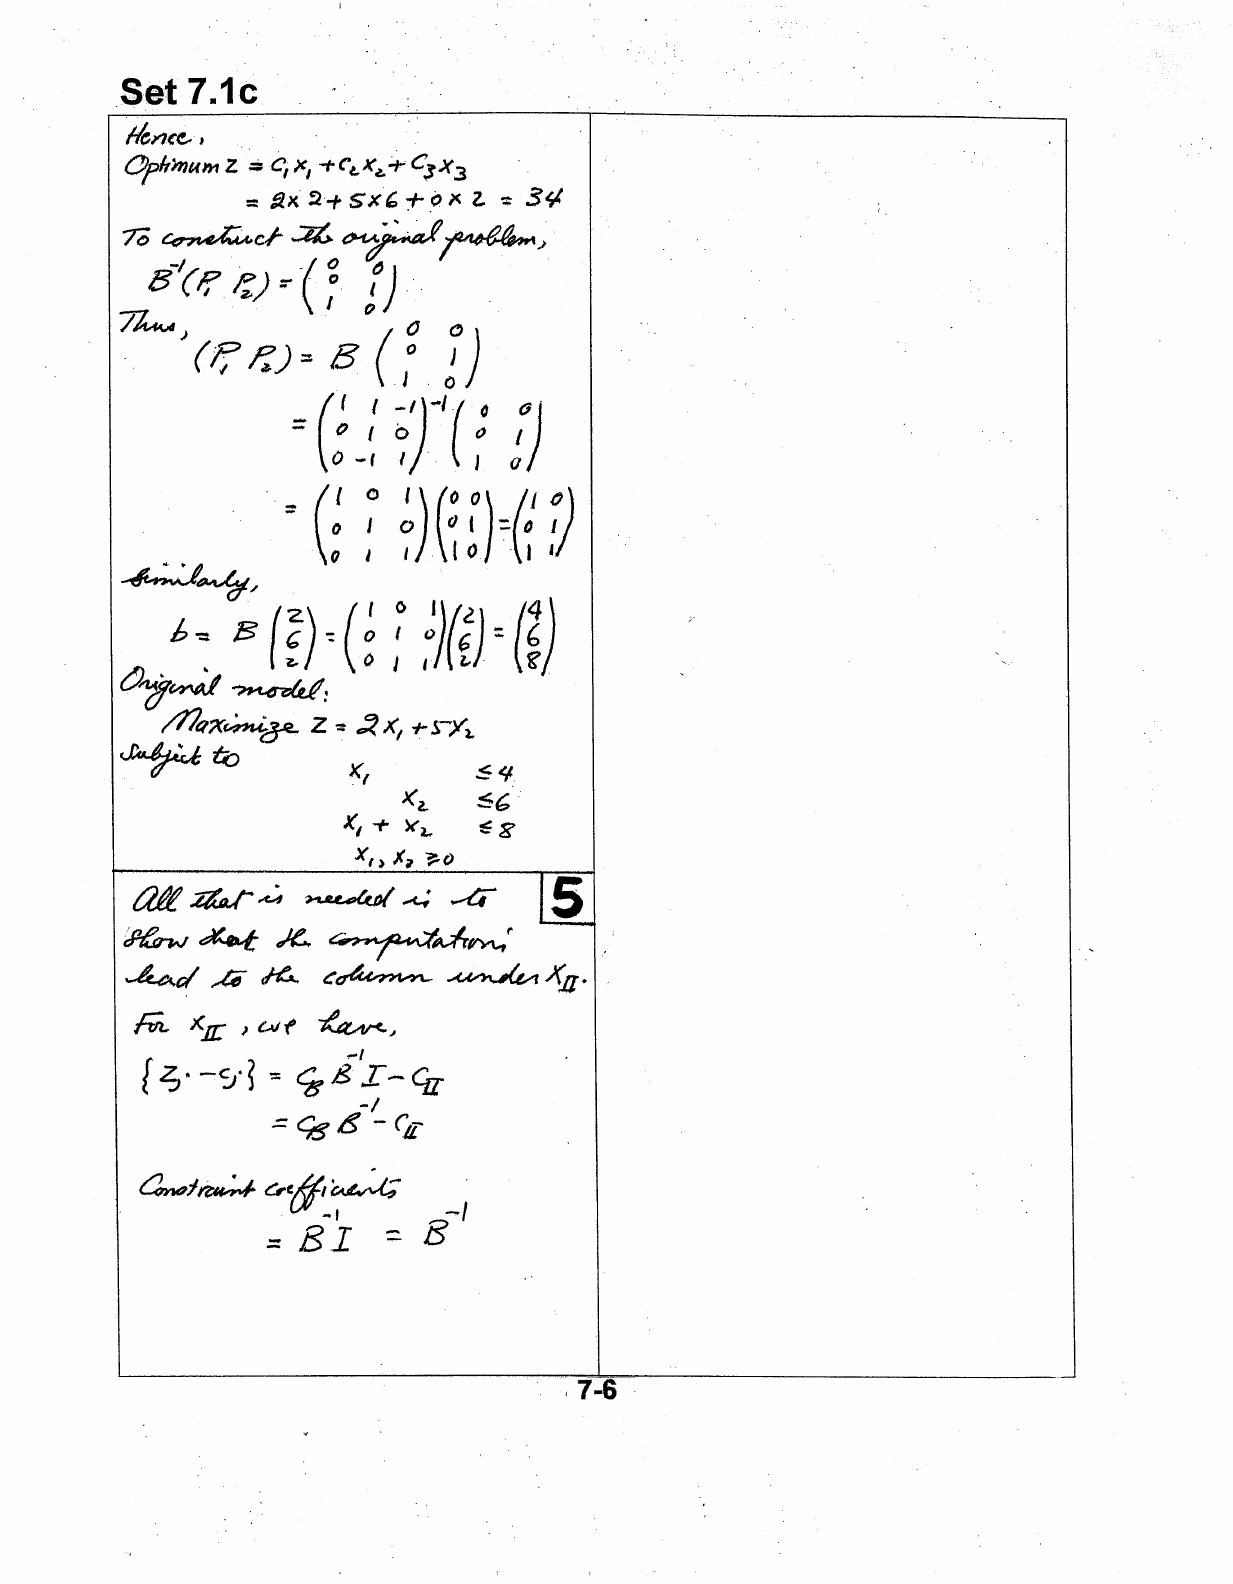 Set 7.1c
Hence,
Optimum z = C₁x₁ + C₂x₂ + C₃x₃
= 2×2 + 5×6 + 0×2 = 34
To construct the original problem,
B⁻¹(P₁ P₂) = (0 0
0 1
1 0)
Thus,
(P₁ P₂) = B (0 0
0 1
1 0)
= (1 1 -1
0 1 0
0 -1 1)⁻¹ (0 0
0 1
1 0)
= (1 0 1
0 1 0
0 1 1) (0 0
0 1
1 0) = (1 0
0 1
1 1)
Similarly,
b = B (2
6
2) = (1 0 1
0 1 0
0 1 1) (2
6
2) = (4
6
8)
Original model:
Maximize z = 2x₁ + 5x₂
Subject to
x₁ ≤ 4
x₂ ≤ 6
x₁ + x₂ ≤ 8
x₁, x₂ ≥ 0
5
All that is needed is to
show that the computations
lead to the column under X_II.
For X_II, we have,
{z_j - c_j} = C_B B⁻¹ I - C_II
= C_B B⁻¹ - C_II
Constraint coefficients
= B⁻¹ I = B⁻¹
7-6